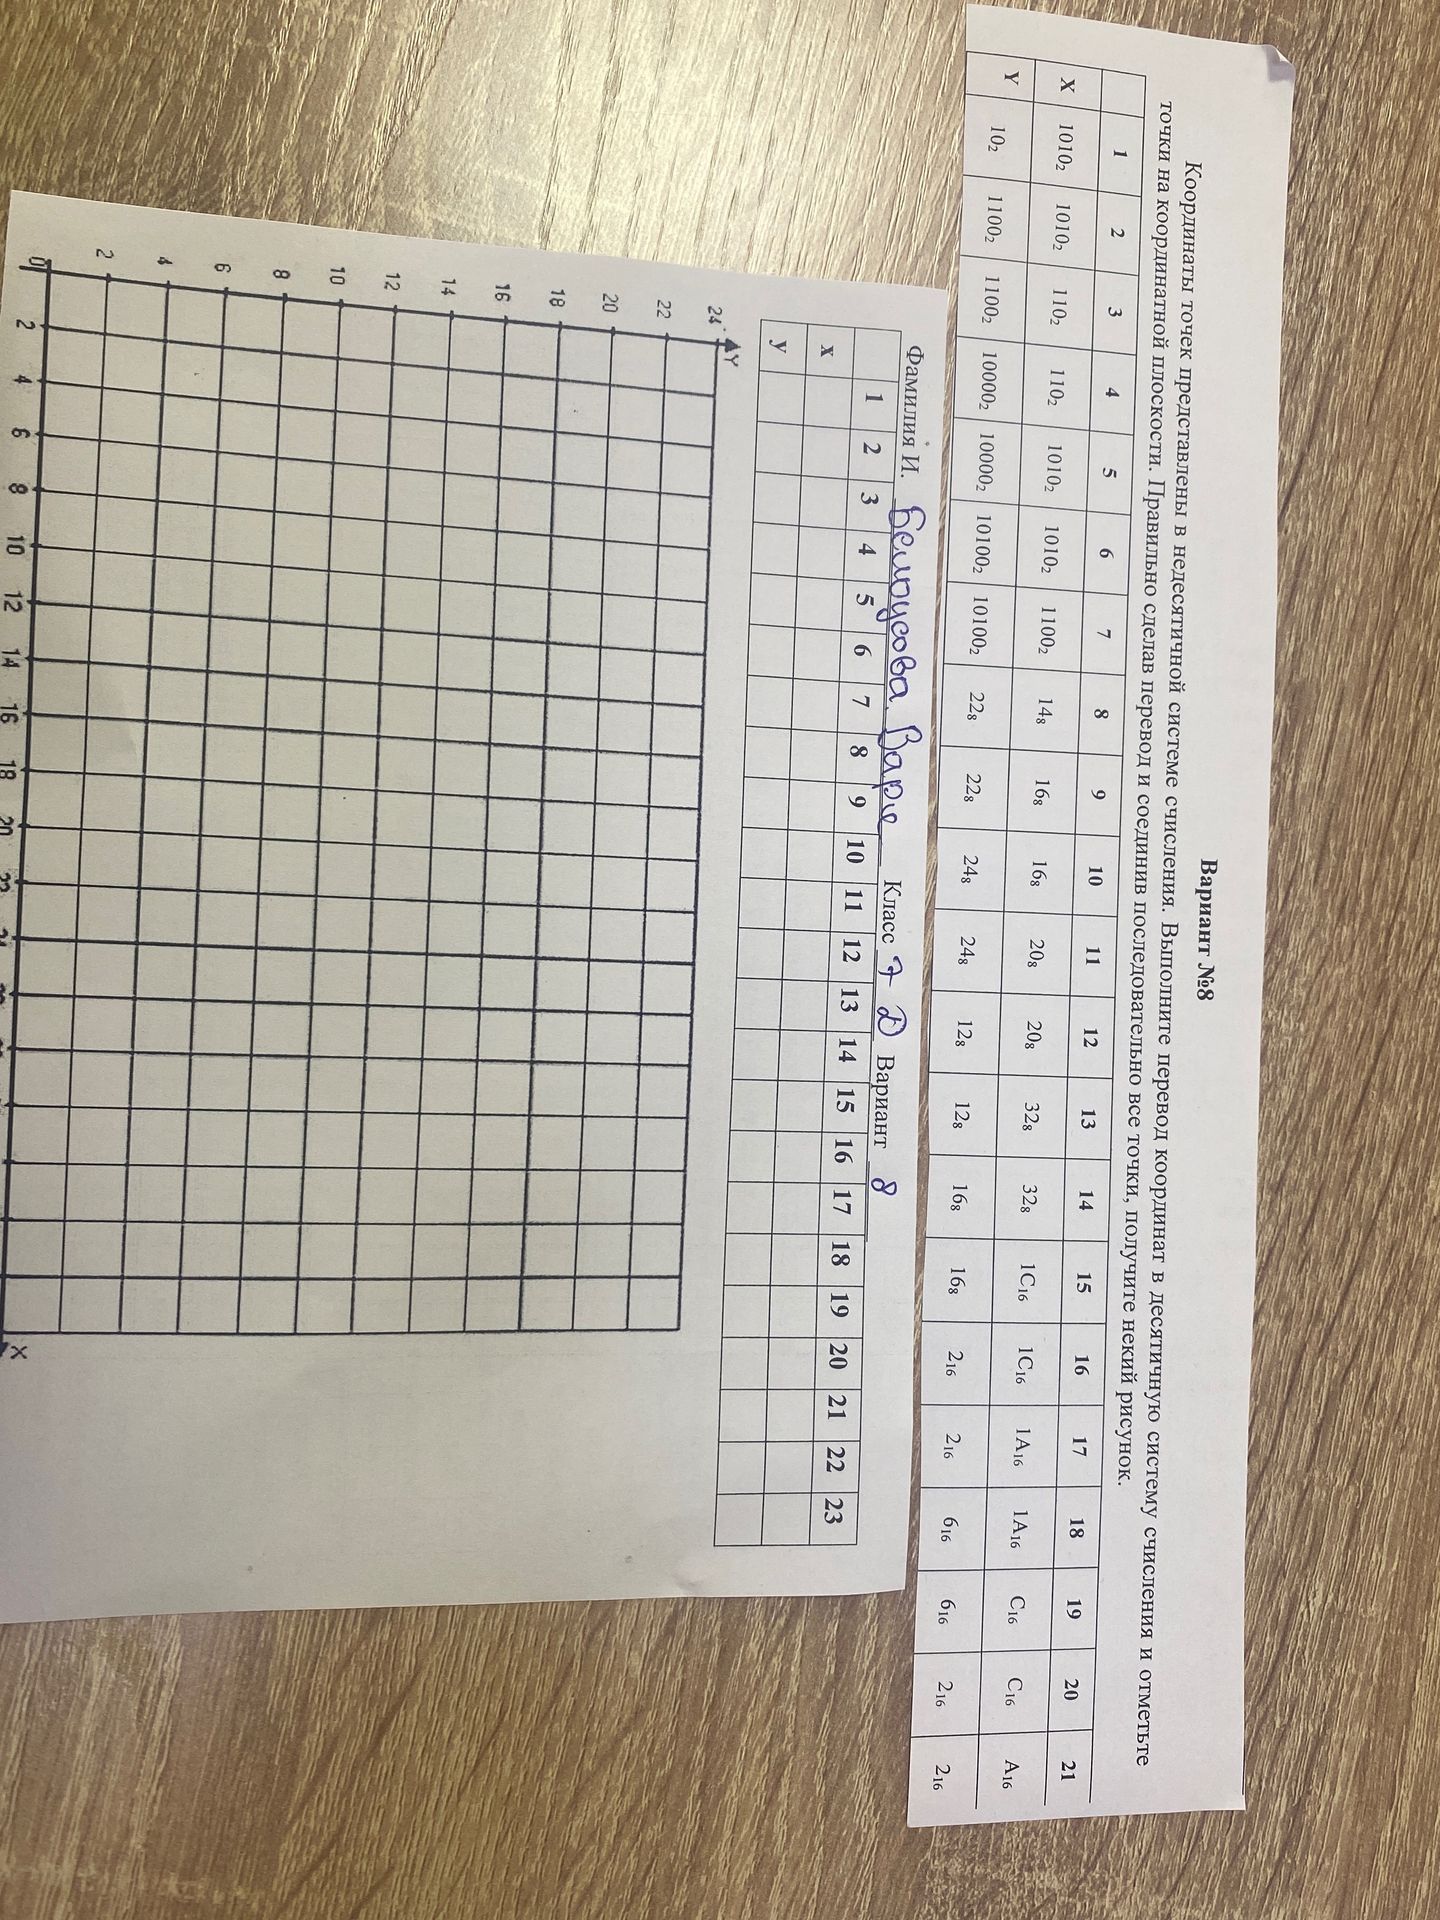 Вариант №8
Координаты точек представлены в недесятичной системе счисления. Выполните перевод координат в десятичную систему счисления и отметьте
точки на координатной плоскости. Правильно сделав перевод и соединив последовательно все точки, получите некий рисунок.
1 2 3 4 5 6 7 8 9 10 11 12 13 14 15 16 17 18 19 20 21
X 1010₂ 1010₂ 110₂ 110₂ 1010₂ 1010₂ 1100₂ 14₈ 16₈ 16₈ 20₈ 20₈ 32₈ 32₈ 1C₁₆ 1C₁₆ 1A₁₆ 1A₁₆ C₁₆ C₁₆ A₁₆
Y 10₂ 1100₂ 1100₂ 10000₂ 10000₂ 10100₂ 10100₂ 22₈ 22₈ 24₈ 24₈ 12₈ 12₈ 16₈ 16₈ 2₁₆ 2₁₆ 6₁₆ 6₁₆ 2₁₆ 2₁₆
Фамилия И. Белоусова Варя Класс 7 Д Вариант 8
1 2 3 4 5 6 7 8 9 10 11 12 13 14 15 16 17 18 19 20 21 22 23
x
y
Y
24
22
20
18
16
14
12
10
8
6
4
2
0 2 4 6 8 10 12 14 16 18 20 X